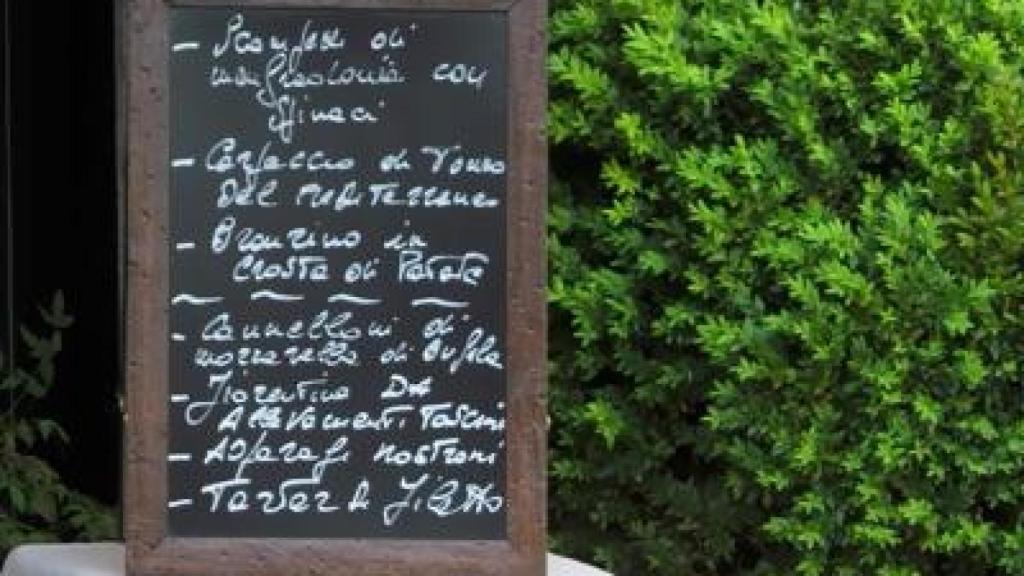 - Scampetti di
manfredonia con
spinaci
- Carpaccio di Tonno
Del Mediterraneo
- Branzino in
Crosta di Patate
~ ~ ~ ~
- Cannelloni di
mozzarella di Bufala
- Fiorentina Da
Allevamenti Toscani
- Asparagi nostrani
- Tartar di Filetto